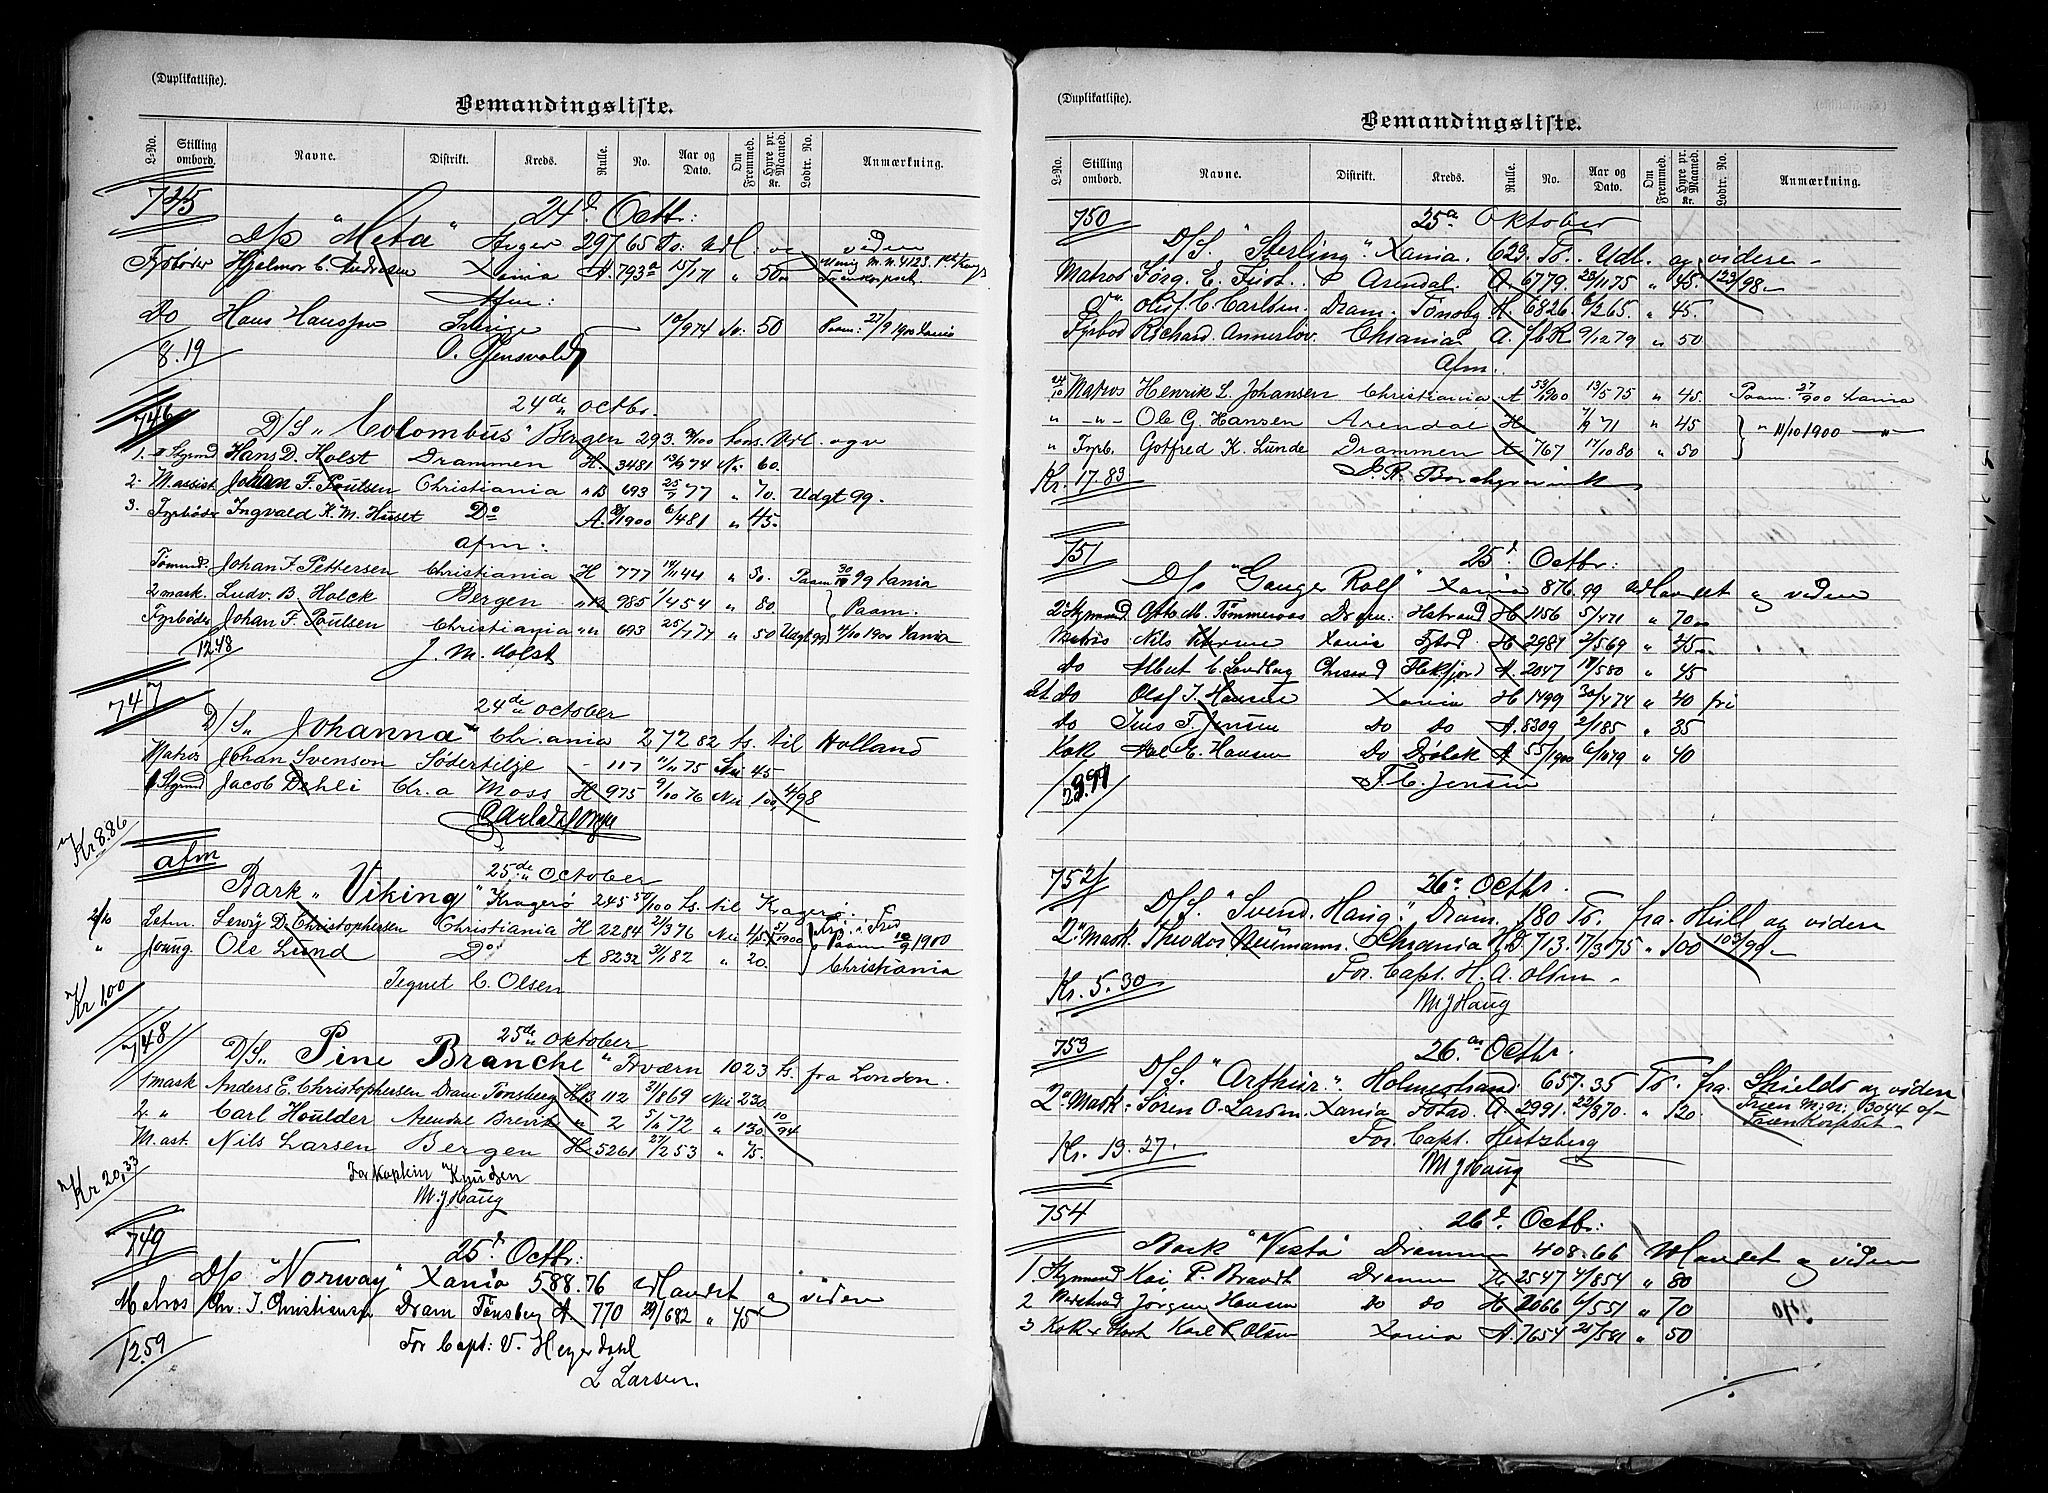 (Duplikatliste).
Bemandingsliste.
L-No. Stilling ombord. Navne. Distrikt. Kreds. Rulle. No. Aar og Dato. Om Fremmed. Hyre pr. Maaned. Kr. Lodtr. No. Anmærkning.
745 24d Octbr:
D/s "Meta" 297.65 To: Udl. og viden
Fyrbøder Hjalmar C. Andresen Xania A. 793a 15/1 71 " 50
Afm:
Do Hans Hansson Sverige 10/9 74 Sv. 50 Paam: 27/9 1900 Xania
8.19
746 24de octbr.
D/S „Colombus" Bergen 293. tons. Udl. ogv
1. Styrmd Hans D. Holst Drammen H. 3481 74 Nei 60.
2. M. assist. Johan F. Poulsen Christiania " B 693 25/7 77 " 70. Udgt 99.
3. Fyrbøder Ingvald K. M. Huset Do A. /1900 6/4 81 " 45.
afm:
Tømmd. Johan F. Pettersen Christiania H 777 19/11 44 " 50. Paam 99 Xania
2 mask. Ludv. B. Holck Bergen " B 985 1/4 54 " 80. Paam.
Fyrbøder Johan F. Poulsen Christiania " " 693 25/7 77 " 50 Udgt 99 4/10 1900 Xania
12.48 J. M. Holst
747 24de october
D/S „Johanna" Chr.ania 272 82 ts. til Holland
Matros Johan Svenson Södertelje - 117 75 Nei 45
1 Styrmd Jacob Dehli Chr.a Moss H 975 9/10 76 Nei 100, 4/98
Kr 8.86
afm 25de October
Bark „Viking" Kragerø 245 50/100 ts. til Kragerø.
Letm. Lewy D. Christophersen Christiania H 2284 21/3 76 Nei 45
" Joung. Ole Lund Do A 8232 31/1 82 " 20. Paam 1900 Christiania
Kr 1.00 Tegnet C. Olsen
748 25de oktober
D/S „Pine Branche" Tværn 1023 ts. fra London.
1 mask Anders E. Christophersen Dram Tønsberg H B 112 31/8 69 Nei 230.
2. " Carl Houlder Arendal Brevik " 2 72 " 130. 10/94
M. ast. Nils Larsen Bergen H. 5261 27/2 53 " 75.
Kr 20,33 For Kaptein Knudsen
M. J Haug
749 25d Octbr:
D/s "Norway" Xania 588.76 Udlandet og viden
Matros Chr. J. Christiansen Dram Tønsberg A 770 29/6 82 " 45
12.59 For Capt: V. Heyerdahl
L Larsen.
(Duplikatliste).
Bemandingsliste.
L-No. Stilling ombord. Navne. Distrikt. Kreds. Rulle. No. Aar og Dato. Om Fremmed. Hyre pr. Maaned. Kr. Lodtr. No. Anmærkning.
750 25de Oktober
D/S. "Sterling". Xania. 623. To. Udl. og videre
Matros Jørg. E. Arendal. A 6779. 75 " 45. 123/98
Do Olaf. C. Carlsen. Dram. Tønsbg. H. 6826 6/2 65. " 45.
Fyrbød Richard Annerløv. Chrania A. 9/12 79 " 50
Afm.
24/10 Matros Henrik L. Johansen Christiania A 53/1900 13/5 75 " 45. Paam. 27/ 900 Xania
" -"- Ole G. Hansen Arendal H 71 " 45 " 11/10 1900 -"-
" Fyrb. Gotfred K. Lunde Drammen 767 17/10 80 " 50
Kr. 17.83
751 25d Octbr:
D/s "Ganger Rolf" Xania 876.99 Udlandet og viden
2. Styrmand Otto M. Tømmeraas Dram: Hstrand H 1156 5/1 71 " 70
Matros Nils Xania H 2981 2/5 69 " 45
do Albert C. Lundbeg Chrsand Flekfjord A 2047 18/5 80 " 45
Let. do Olaf J. Hansen Xania H 1499 30/4 74 " 40 fri
do Jens T. Jensen Do Do A. 8309 2/1 85 " 35
Kok E. Hansen Do Drøbak A 55/1900 6/10 79 " 40
T. C. Jensen
752 26de Octbr.
D/S. "Svend. Haug." Dram. 180 To. fra Hull og videre
2. Mask. Theodor Neumann Chrania H. 713. 17/3 75 " 100 103/99
For. Capt. H. A. Olsen
Kr. 5.30 M J Haug
753 26de Octbr.
D/S. "Arthur". Holmestrand 657.35 To. fra. Shields og viden
2de Mask: Søren O. Larsen. Xania A. 2991. 22/8 70. " 120
For. Capt. Hertzberg
Kr. 19.27. M J Haug
754 26d Octbr:
Bark "Vesta" Drammen 408.66 Udlandet og viden
1. Styrmand Kai P. Brandt Drammen H. 2547 4/8 54 " 80
2 Jørgen Hansen do do H 2066 6/5 51 " 70
3 Kok Karl P. Olsen Xania A. 7654 81 " 50